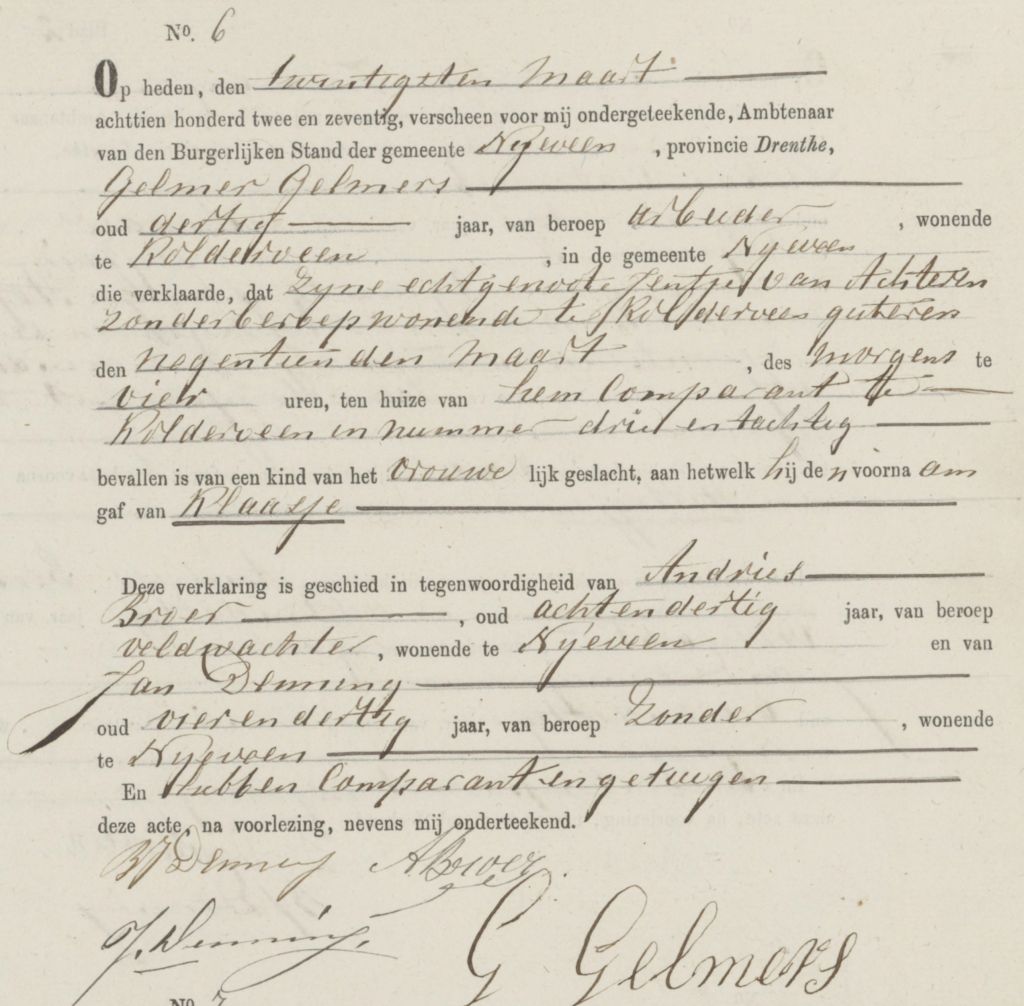 No. 6
Op heden, den twintigsten Maart
achttien honderd twee en zeventig, verscheen voor mij ondergeteekende, Ambtenaar
van den Burgerlijken Stand der gemeente Nijeveen, provincie Drenthe,
Gelmer Gelmers
oud dertig jaar, van beroep arbeider, wonende
te Kolderveen, in de gemeente Nijeveen
die verklaarde, dat Zyne echtgenoote Jentje van Achteren
zonder beroep wonende te Kolderveen gisteren
den negentienden Maart, des morgens te
vier uren, ten huize van hem Comparant te
Kolderveen in nummer drie en tachtig
bevallen is van een kind van het vrouwelijk geslacht, aan hetwelk hij den voornaam
gaf van Klaasje
Deze verklaring is geschied in tegenwoordigheid van Andries
Broer, oud achtendertig jaar, van beroep
veldwachter, wonende te Nijeveen en van
Jan Denning
oud vierendertig jaar, van beroep Zonder, wonende
te Nijeveen
En hebben Comparant en getuigen
deze acte, na voorlezing, nevens mij onderteekend.
Denning ABroer.
J. Denning.
G Gelmers
No. 7